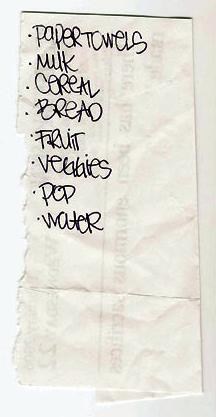 · PAPER TOWELS
· MILK
· CEREAL
· BREAD
· FRUIT
· VEGGIES
· POP
· WATER